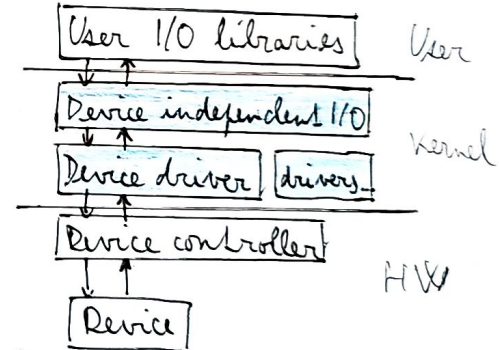 User I/O libraries User
Device independent I/O
Kernel
Device driver drivers...
Device controller
HW
Device